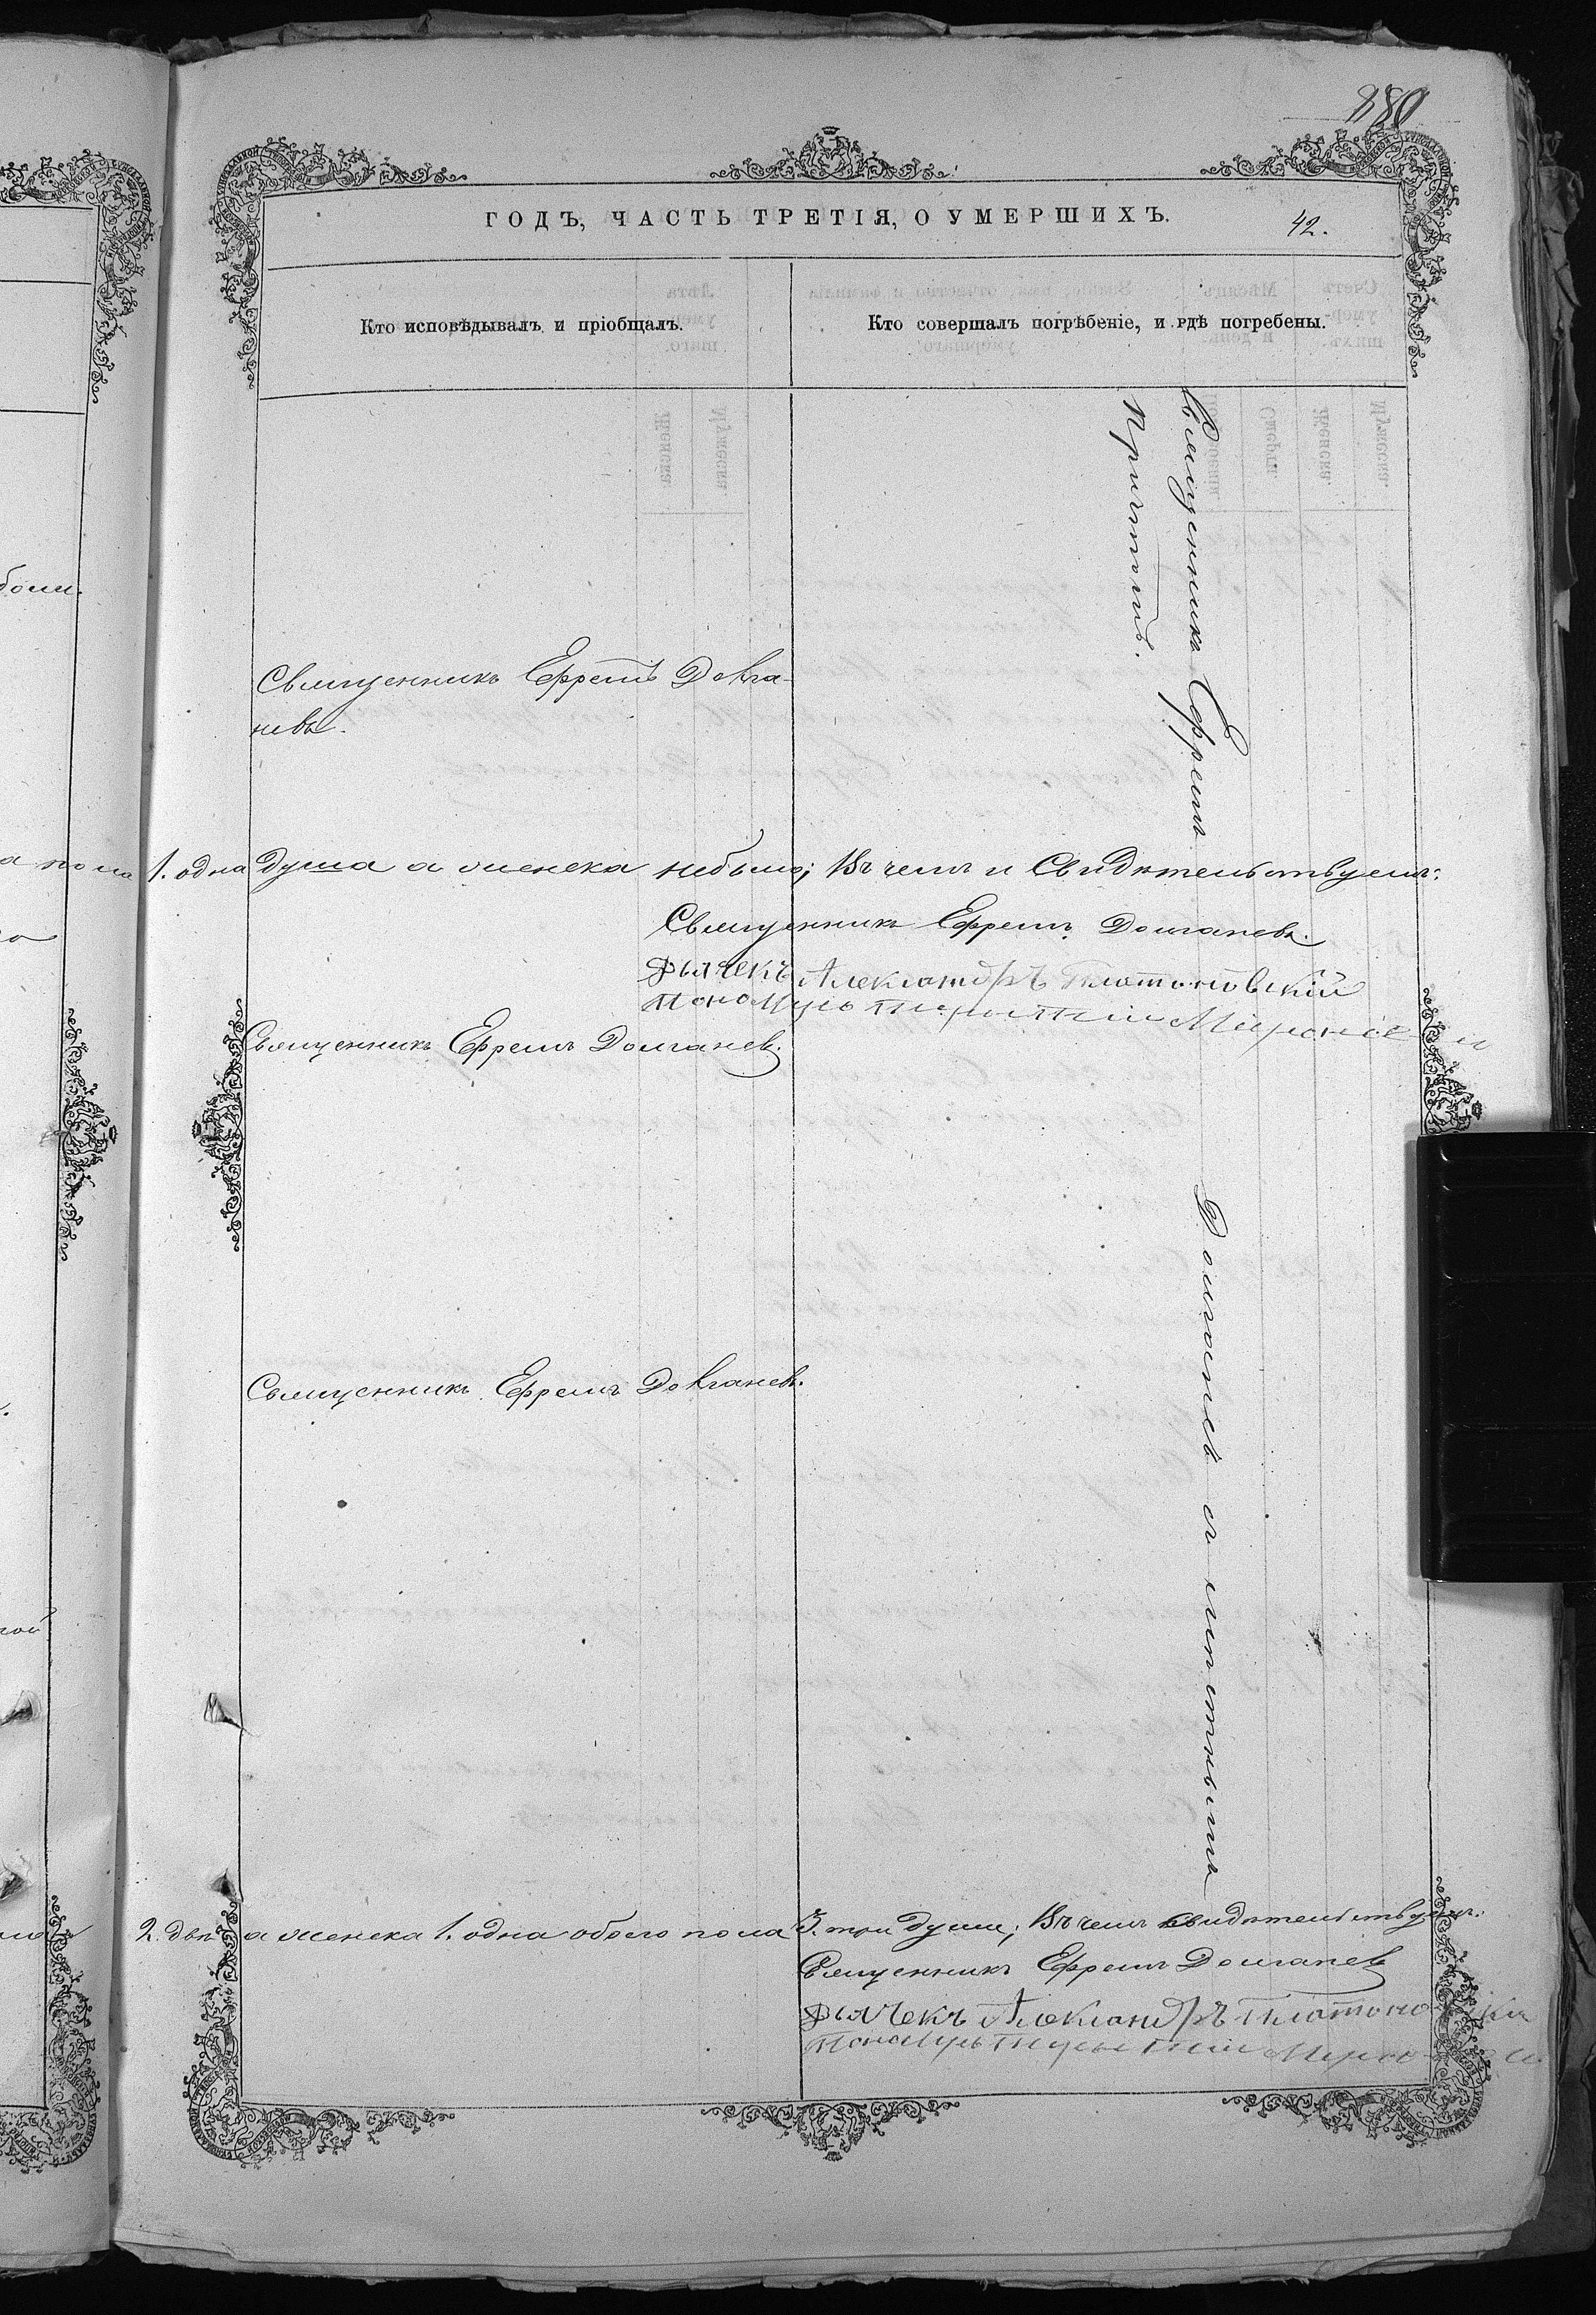 880
ГОДЪ, ЧАСТЬ ТРЕТІЯ, О УМЕРШИХЪ.
42.
Кто исповѣдывалъ и пріобщалъ.
Кто совершалъ погрѣбеніе, и гдѣ погребены.
Священникъ Ефремъ Долга-
невъ.
Священникъ Ефремъ
Причтомъ.
1. одна душа а женска небыло; Въ чемъ и Свидѣтельствуемъ:
Священникъ Ефремъ Долганевъ.
Дьячекъ Александръ Платоновскій
Пономарь
Священникъ Ефремъ Долганевъ.
Священникъ Ефремъ Долганевъ.
Долганевъ съ мѣстнымъ
2. двѣ а женска 1. одна обоего пола 3. три души; Въ чемъ свидѣтельствуемъ:
Священникъ Ефремъ Долганевъ
Дьячекъ Александръ
Пономарь